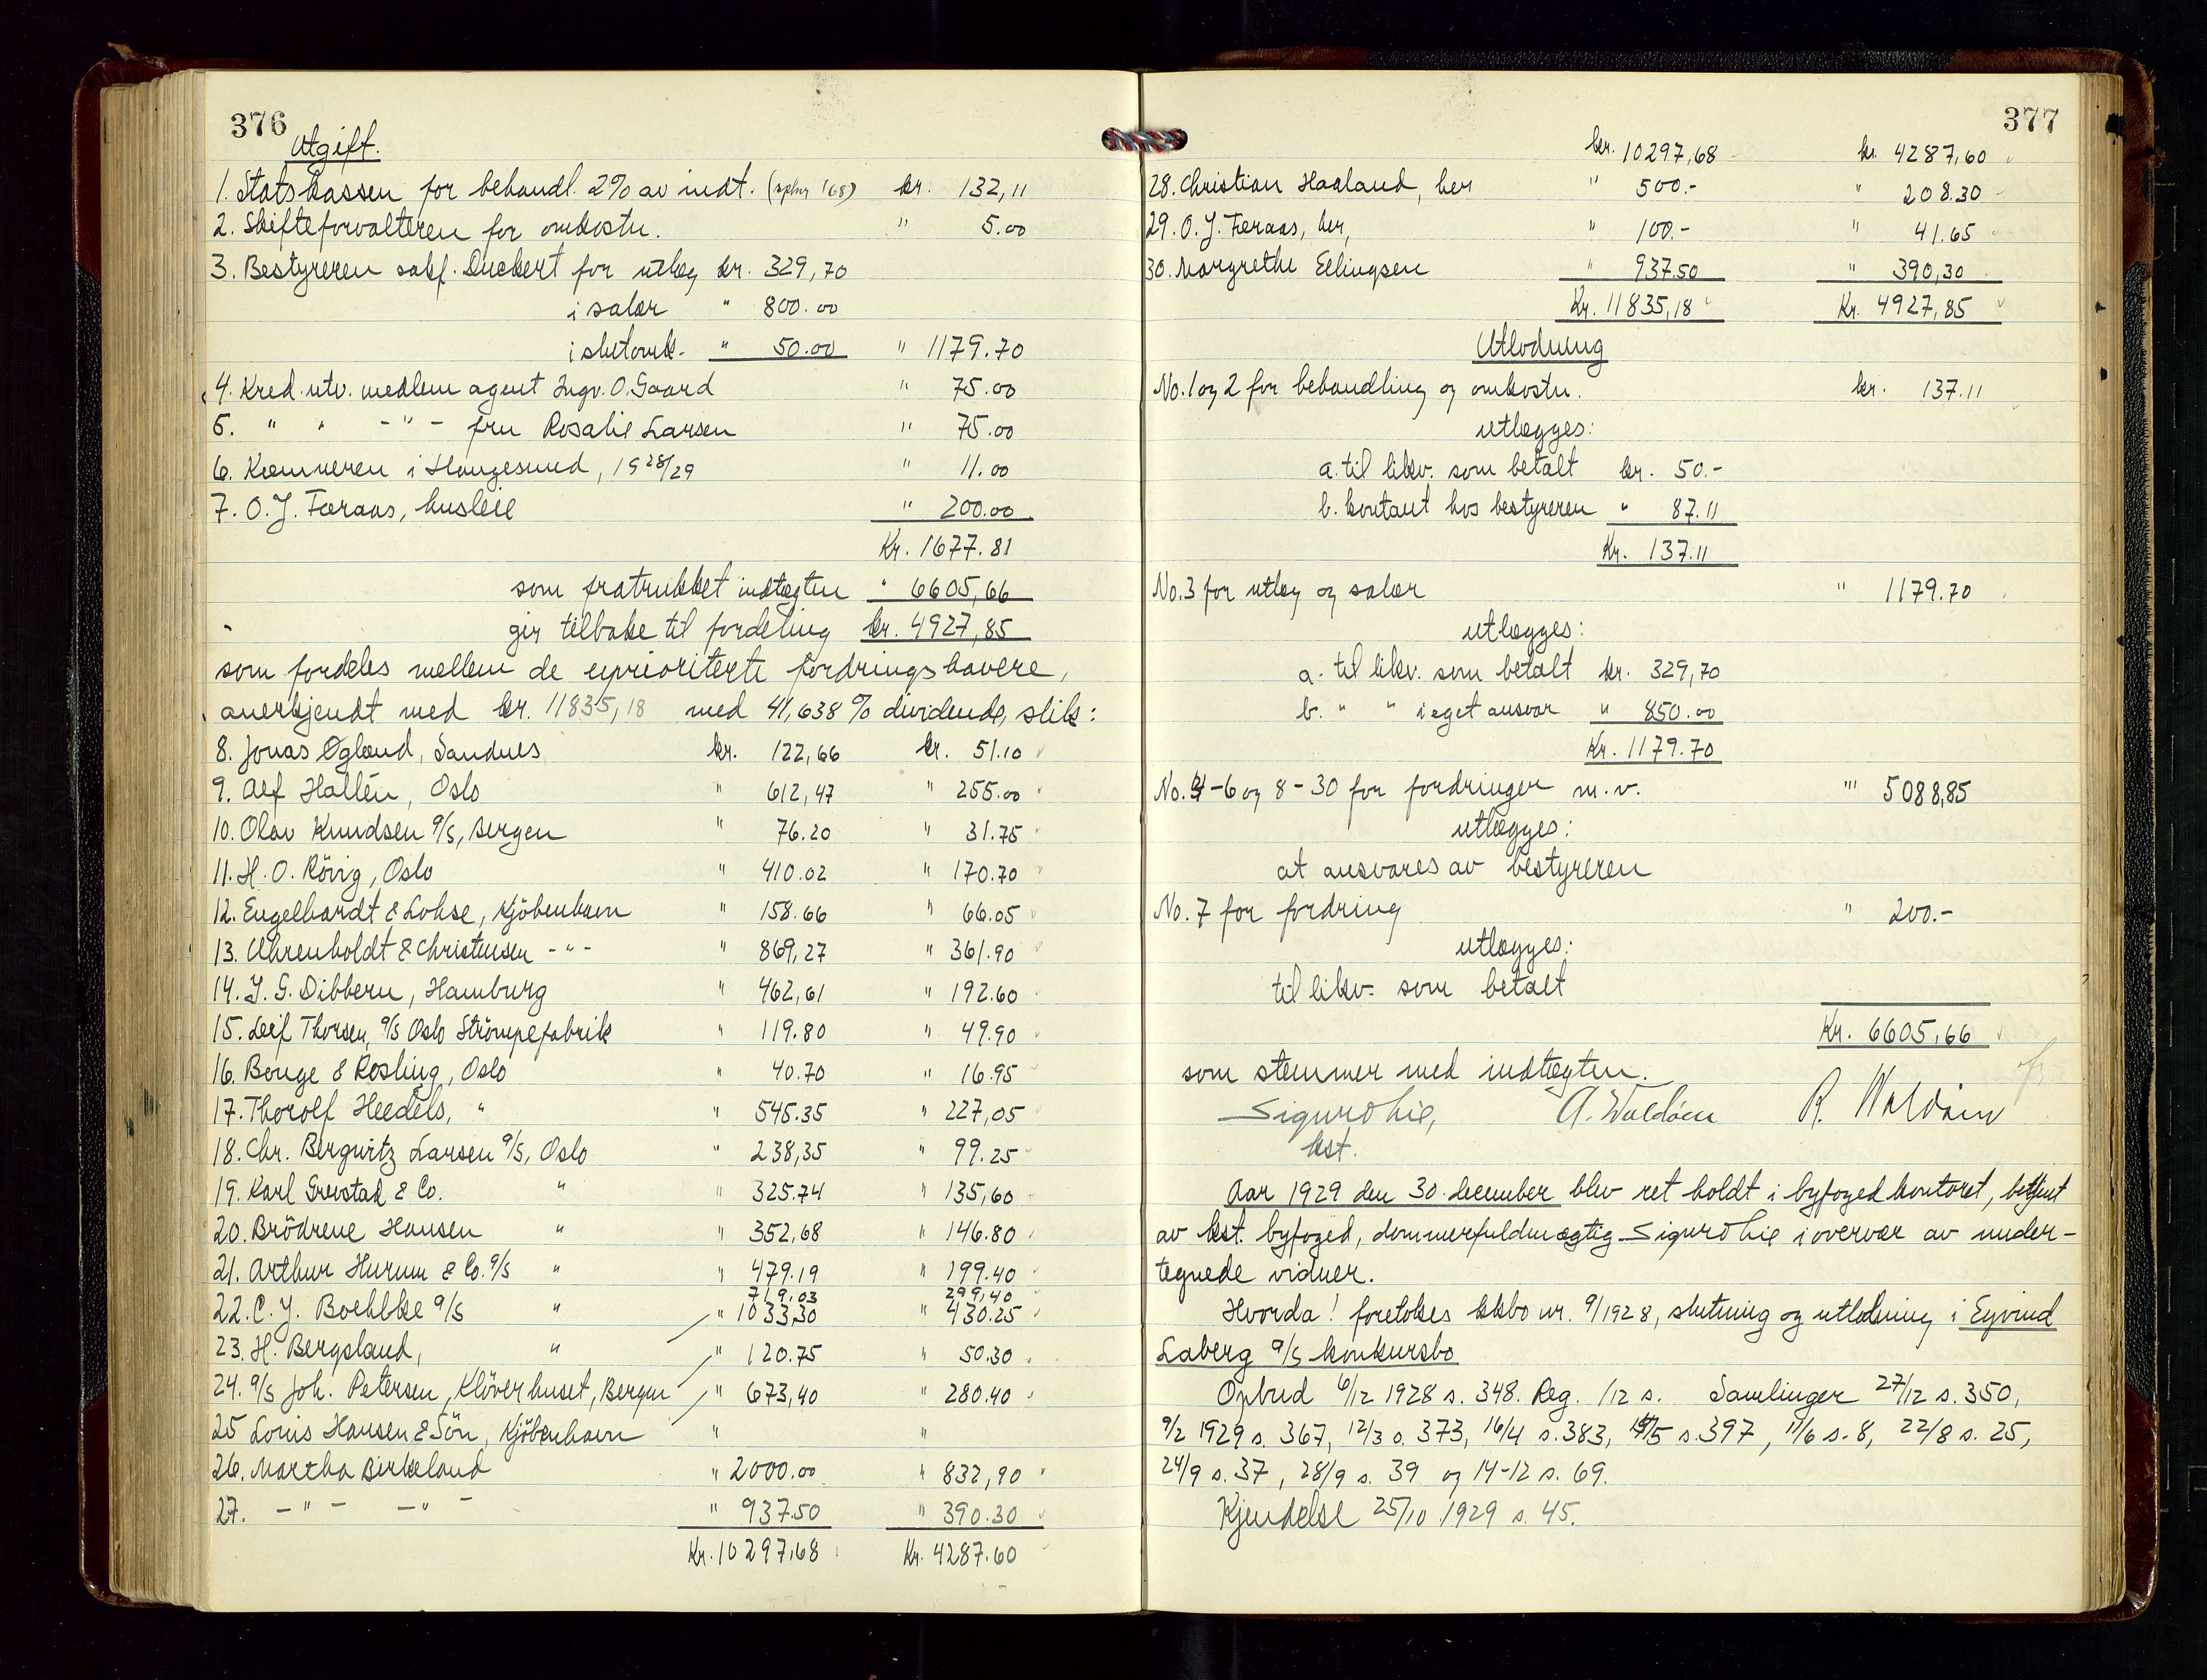 376
Utgift.
1. Statskassen for behandl. 2% av indt. kr. 132,11
2. Skifteforvalteren for omkostn. " 5.00
3. Bestyreren sakf. Duckert for utlæg kr. 329,70
i salær " 800.00
i slutomk. " 50.00 " 1179.70
4. Kred. utv. medlem agent Ingv. O. Gaard " 75.00
5. " " - " - fru Rosalie Larsen " 75.00
6. Kæmneren i Haugesund, 1928/29 " 11.00
7. O. J. Færaas, husleie " 200.00
Kr. 1677.81
som fratrukket indtægten " 6605,66
gir tilbake til fordeling kr. 4927,85
som fordeles mellem de uprioriterte fordringshavere,
anerkjendt med kr. 11835,18 med 41,638 % dividende, slik:
8. Jonas Øglænd, Sandnes kr. 122,66 kr. 51.10
9. Alf Hallén, Oslo " 612,47 " 255.00
10. Olav Knudsen A/S, Bergen " 76.20 " 31.75
11. H. O. Rövig, Oslo " 410.02 " 170.70
12. Engelhardt & Lohse, Kjöbenhavn " 158.66 " 66.05
13. Uhrenholdt & Christensen - " - " 869,27 " 361.90
14. J. G. Dibbern, Hamburg " 462,61 " 192.60
15. Leif Thorsen, A/S Oslo Strömpefabrik " 119.80 " 49.90
16. Bouge & Rosling, Oslo " 40.70 " 16.95
17. Thorolf Heedels, " " 545.35 " 227,05
18. Chr. Bergwitz Larsen A/S, Oslo " 238,35 " 99.25
19. Karl Grevstad & Co. " " 325.74 " 135,60
20. Brödrene Hansen " " 352,68 " 146.80
21. Arthur Hurum & Co. A/S " " 479.19 " 199.40
719.03 299,40
22. C. J. Boehlke A/S " " 1033,30 " 430.25
23. H. Bergsland, " " 120.75 " 50.30
24. A/S Joh. Petersen, Klöverhuset, Bergen " 673,40 " 280.40
25 Louis Hansen & Sön, Kjöbenhavn " "
26. Martha Birkeland " 2000.00 " 832,90
27. - " - - " - " 937.50 " 390.30
Kr. 10297,68 Kr. 4287.60
377
kr. 10297,68 kr. 4287,60
28. Christian Haaland, her " 500.- " 208.30
29. O. J. Færaas, her, " 100.- " 41.65
30. Margrethe Ellingsen " 937.50 " 390,30
Kr. 11835,18 Kr. 4927,85
Utlodning
No. 1 og 2 for behandling og omkostn. kr. 137.11
utlægges:
a. til likv. som betalt kr. 50.-
b. kontant hos bestyreren " 87.11
Kr. 137.11
No. 3 for utlæg og salær " 1179.70
utlægges:
a. til likv. som betalt kr. 329,70
b. " " i eget ansvar " 850.00
Kr. 1179.70
No. 4-6 og 8-30 for fordringer m.v. " 5088,85
utlægges:
at ansvares av bestyreren
No. 7 for fordring " 200.-
utlægges:
til likv. som betalt
Kr. 6605,66
som stemmer med indtægten.
Sigurd Lie, A. Waldám R. Waldám
kst.
Aar 1929 den 30. december blev ret holdt i byfogedkontoret, betjent
av kst. byfoged, dommerfuldmægtig Sigurd Lie i overvær av under-
tegnede vidner.
Hvorda! foretokes kkbo nr. 9/1928, slutning og utlodning i Eyvind
Laberg A/S konkursbo
Opbud 6/12 1928 s. 348. Reg. /12 s. Samlinger 27/12 s. 350,
9/2 1929 s. 367, 12/3 s. 373, 16/4 s. 383, 14/5 s. 397, 11/6 s. 8, 22/8 s. 25,
24/9 s. 37, 28/9 s. 39 og 14-12 s. 69.
Kjendelse 25/10 1929 s. 45.